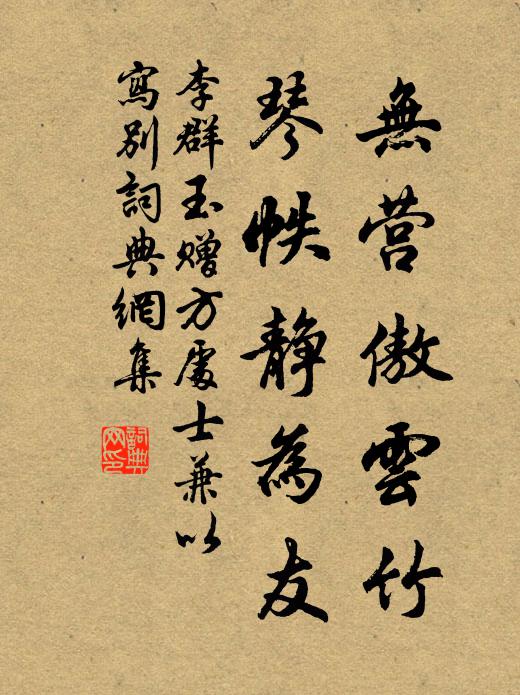 無营傲雲竹
琴帙静為友
李群玉赠方處士兼以
寫别詞典網集
詞典
网印